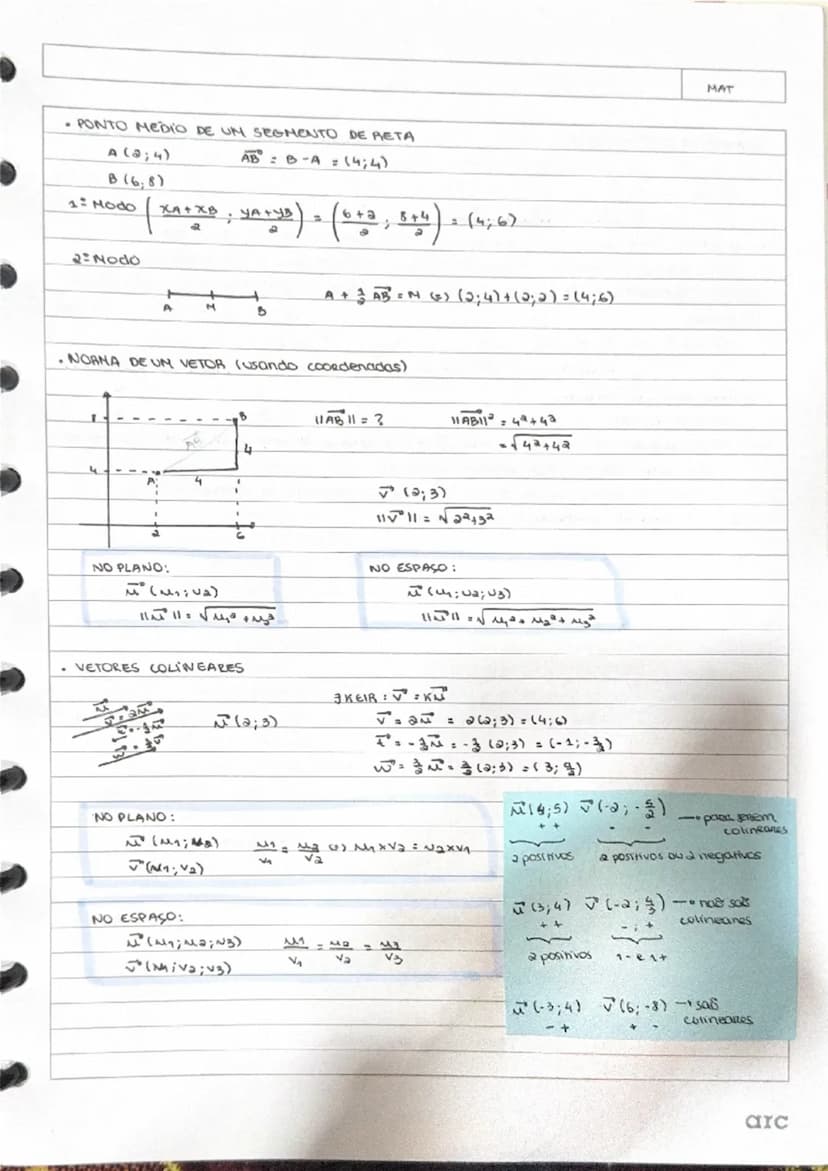 MAT
• PONTO MÉDIO DE UM SEGMENTO DE RETA
A (2; 4) AB⃗ = B - A = (4; 4)
B (6; 8)
1º MODO (xA + xB / 2 ; yA + yB / 2) = (6+2 / 2 ; 8+4 / 2) = (4; 6)
2º MODO
A + 1/2 AB⃗ = M (=) (2; 4) + (2; 2) = (4; 6)
A M B
• NORMA DE UM VETOR (usando coordenadas)
8 B ||AB⃗|| = ? ||AB⃗||² = 4² + 4²
AB⃗ 4 = √4² + 4²
4 A 4
v⃗ (2; 3)
||v⃗|| = √2² + 3²
2 6
NO PLANO:
u⃗ (u1; u2)
||u⃗|| = √u1² + u2²
NO ESPAÇO:
u⃗ (u1; u2; u3)
||u⃗|| = √u1² + u2² + u3²
• VETORES COLINEARES
u⃗
v⃗ = 2u⃗
t⃗ = -1/2 u⃗
w⃗ = 3/2 u⃗
u⃗ (2; 3)
∃ K ∈ IR : v⃗ = K u⃗
v⃗ = 2u⃗ = 2(2; 3) = (4; 6)
t⃗ = -1/2 u⃗ = -1/2 (2; 3) = (-1; -3/2)
w⃗ = 3/2 u⃗ = 3/2 (2; 3) = (3; 9/2)
NO PLANO:
u⃗ (u1; u2) u1/v1 = u2/v2 (=) u1 × v2 = u2 × v1
v⃗ (v1; v2)
NO ESPAÇO:
u⃗ (u1; u2; u3) u1/v1 = u2/v2 = u3/v3
v⃗ (v1; v2; v3)
u⃗ (4; 5) v⃗ (-2; -5/2) → para serem
+ + - - colineares
2 positivos 2 positivos ou 2 negativos
u⃗ (3; 4) v⃗ (-2; 4/3) → não são
+ + - ; + colineares
2 positivos 1 - e 1 +
u⃗ (-3; 4) v⃗ (6; -8) → são
- + + - colineares
arc